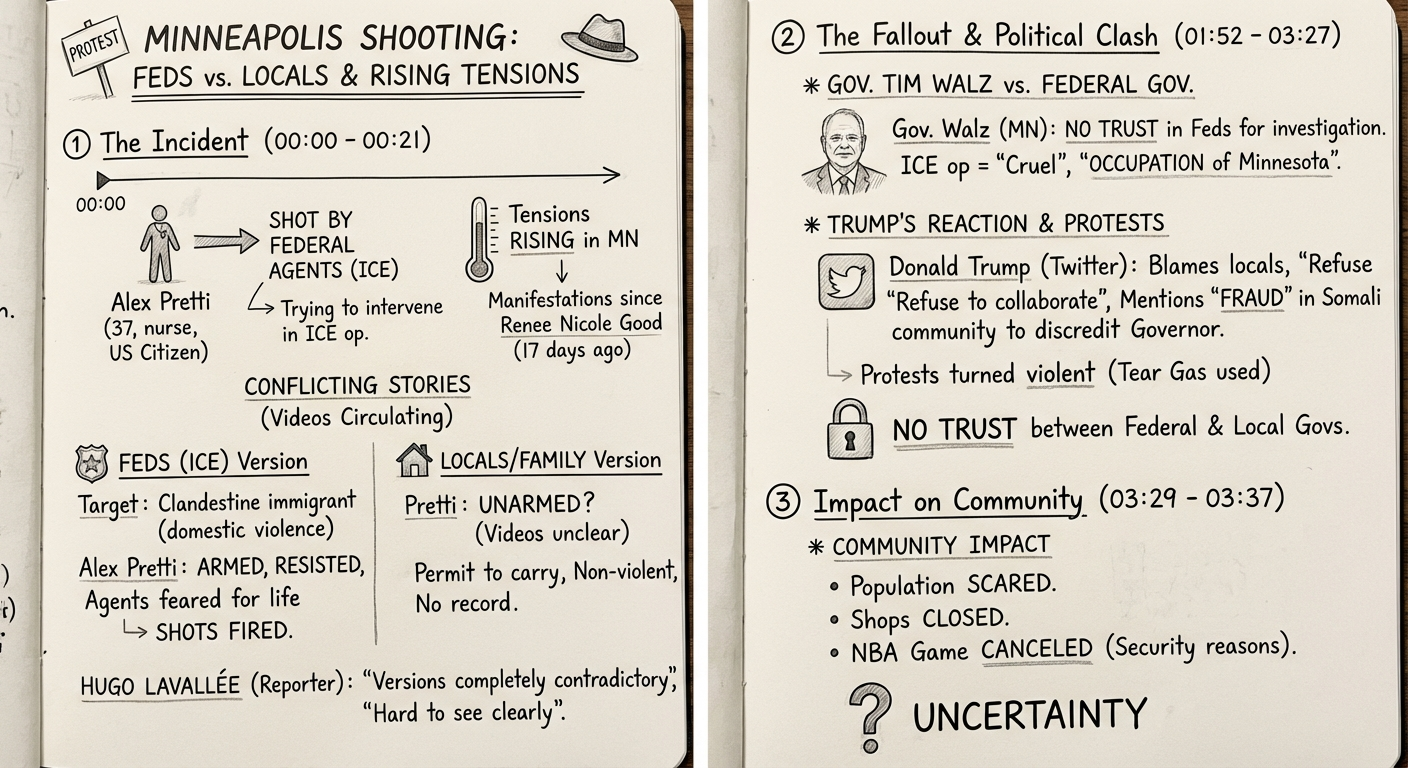 PROTEST
MINNEAPOLIS SHOOTING:
FEDS vs. LOCALS & RISING TENSIONS
1 The Incident (00:00 – 00:21)
00:00
SHOT BY
FEDERAL
AGENTS (ICE)
Trying to intervene
in ICE op.
Alex Pretti
(37, nurse,
US Citizen)
Tensions
RISING in MN
Manifestations since
Renee Nicole Good
(17 days ago)
CONFLICTING STORIES
(Videos Circulating)
FEDS (ICE) Version
Target: Clandestine immigrant
(domestic violence)
Alex Pretti: ARMED, RESISTED,
Agents feared for life
SHOTS FIRED.
LOCALS/FAMILY Version
Pretti: UNARMED?
(Videos unclear)
Permit to carry, Non-violent,
No record.
HUGO LAVALLÉE (Reporter): “Versions completely contradictory”,
“Hard to see clearly”.
2 The Fallout & Political Clash (01:52 – 03:27)
* GOV. TIM WALZ vs. FEDERAL GOV.
Gov. Walz (MN): NO TRUST in Feds for investigation.
ICE op = “Cruel”, “OCCUPATION of Minnesota”.
* TRUMP'S REACTION & PROTESTS
Donald Trump (Twitter): Blames locals, “Refuse
“Refuse to collaborate”, Mentions “FRAUD” in Somali
community to discredit Governor.
Protests turned violent (Tear Gas used)
NO TRUST between Federal & Local Govs.
3 Impact on Community (03:29 – 03:37)
* COMMUNITY IMPACT
• Population SCARED.
• Shops CLOSED.
• NBA Game CANCELED (Security reasons).
? UNCERTAINTY